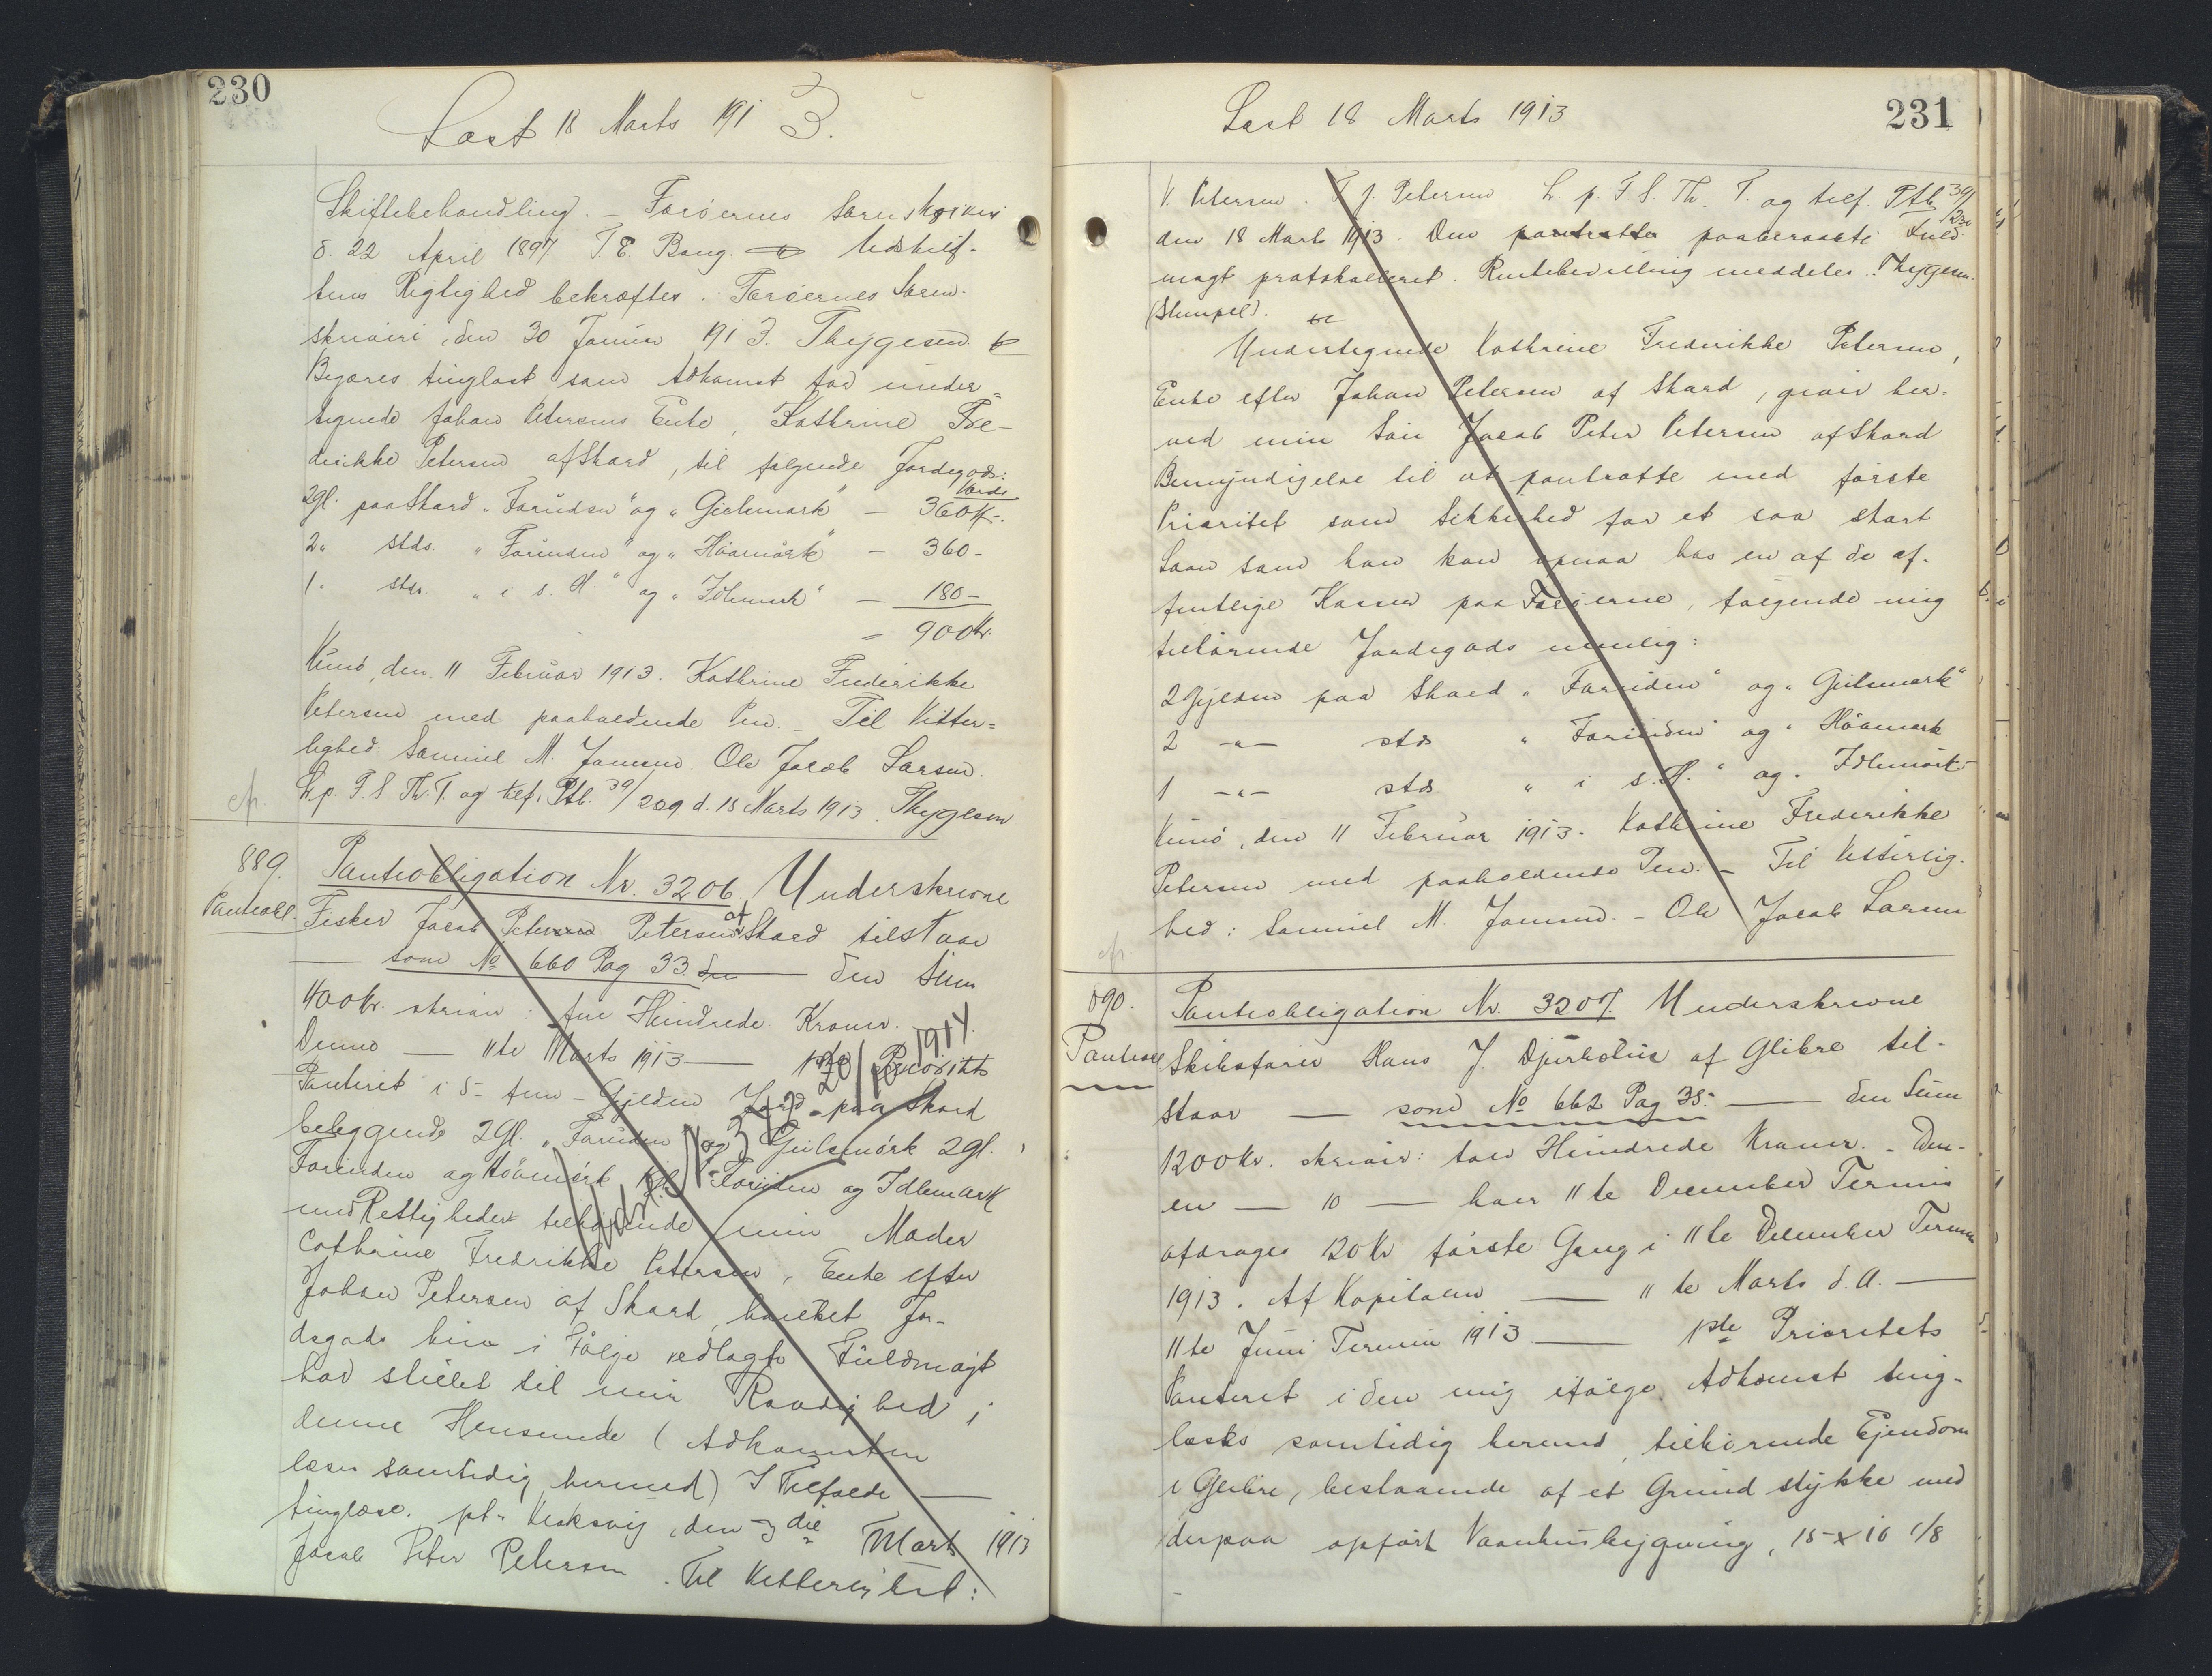 230
Læst 18 Marts 1913.
Skiftebehandling. – Færøernes Sorenskriveri
d. 22 April 1897 T. E. Bang. Udskrif-
tens Rigtighed bekræftes. Færøernes Soren-
skriveri, den 30 Januar 1913. Thygesen
Begæres tinglæst som Adkomst for under=
tegnede Johan Petersens Enke, Kathrine Fre-
derikke Petersen af Skard, til følgende Jordegods:
Værdi
2gl. paa Skard "Foruden" og "Gielmørk" – 360 Kr.
2 " stds. "Foruden" og "Hóamørk" – 360 –
1 " stds. " i s. H." og "Idlemørk" – 180 –
= 900 Kr.
Kunø, den 11 Februar 1913. Kathrine Frederikke
Petersen med paaholdende Pen. – Til Vitter=
lighed: Samuel M. Joensen. Ole Jacob Larsen.
L. p. F. S. Th. T. og tilf. Ptb. 39/209 d. 18 Marts 1913. Thygesen
cfr.
889.
Panteobl.
Panteobligation Nr. 3206. Underskrevne
Fisker Jacob Petersen Petersen af Skard tilstaar
— som No 660 Pag 33. — den Sum
400 Kr. skriver: fire Hundrede Kroner.
Denne — 11te Marts 1913 — 1ste Prioritets
Panteret i 5 – fem – Gylden Jord paa Skard
beliggende 2Gl. "Foruden og Gielmørk 2gl.
Foruden og Hóamørk 1gl. Foruden og Idlemørk
med Rettigheder tilhørende min Moder
Cathrine Fredrikke Petersen, Enke efter
Johan Petersen af Skard, hvilket Jor-
degods hun i Følge vedlagte Fuldmagt
har stillet til min Raadighed i
denne Henseende (Adkomsten
læses samtidig hermed) I Tilfælde —
tinglæse. pt. Klaksvig, den 3die Marts 1913
Jacob Peter Petersen. Til Vitterlighed:
Udsl. 342 20/10 1914.
231
Læst 18 Marts 1913
V. Petersen. T. J. Petersen. L. p. F. S. Th. T. og tilf. Ptb. 39/230
den 18 Marts 1913. Den pantsatte paaberaabte Fuld-
magt protokolleret. Rentebevilling meddeles. Thygesen.
(Stempel).
Undertegnede Kathrine Frederikke Petersen,
Enke efter Johan Petersen af Skard, giver her-
ved min Søn Jacob Peter Petersen af Skard
Bemyndigelse til at pantsætte med første
Prioritet som Sikkerhed for et saa stort
Laan som han kan opnaa hos en af de of-
fentlige Kasser paa Færøerne, følgende mig
tilhørende Jordegods nemlig:
2 Gylden paa Skard "Foruden" og "Gielmørk"
2 –"– stds "Foruden" og "Hóamørk
1 –"– stds " i s. H." og "Idlemørk
Kunø, den 11 Februar 1913. Kathrine Frederikke
Petersen med paaholdende Pen. – Til Vitterlig-
hed: Samuel M. Joensen. – Ole Jacob Larsen
cfr.
890.
Panteobl
Panteobligation Nr. 3207. Underskrevne
Skibsfører Hans J. Djurholm af Glibre til-
staar — som No 662 Pag 35. — den Sum
1200 Kr. skriver: tolv Hundrede Kroner. – Den-
en — 10 — hver 11te December Termin
afdrages 120 Kr første Gang i 11te December Termin
1913. Af Kapitalen — 11te Marts d. A. —
11te Juni Termin 1913 — 1ste Prioritets
Panteret i den mig ifølge Adkomst ting-
læsts samtidig hermed, tilhørende Ejendom
i Glibre, bestaaende af et Grundstykke med
derpaa opført Vaanhusbygning, 15 x 10 1/8